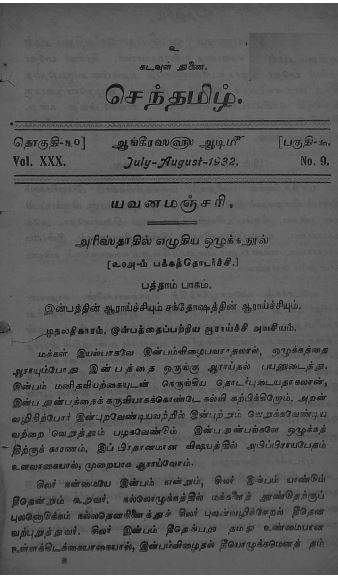 உ
கடவுள் துணை.
செந்தமிழ்.
தொகுதி-௩௰] ஆங்கீரஸளு ஆடிமீ [பகுதி-௯.
Vol. XXX. July-August-1932. No. 9.
யவனமஞ்சரி.
அரிஸ்தாதில் எழுதிய ஒழுக்கநூல்
[௨௦௮-ம் பக்கத்தொடர்ச்சி.]
பத்தாம் பாகம்.
இன்பத்தின் ஆராய்ச்சியும், சந்தோஷத்தின் ஆராய்ச்சியும்.
முதலதிகாரம், இன்பத்தைப்பற்றிய ஆராய்ச்சி அவசியம்.
மக்கள் இயல்பாகவே இன்பம்விழைபவராதலால், ஒழுக்கத்தை
ஆராயும்போது இன்பத்தை ஒருங்கு ஆராய்தல் பயனுடைத்து.
இன்பம் மனிதவியற்கையுடன் நெருங்கிய தொடர்புடையதாகலான்,
இன்பதுன்பத்தைக் கருவியாகக்கொண்டே கல்வி கற்பிக்கிறோம். அறன்
வழிநிற்போர் இன்புறவேண்டியவற்றில் இன்புற்றும் வெறுக்கவேண்டிய
வற்றை வெறுத்தும் பழகவேண்டும். இன்பதுன்பங்களே ஒழுக்கத்
திற்குக் காரணம், இப் பிரதானமான விஷயத்தில் அபிப்பிராயபேதம்
உளவாகையால், முறையாக ஆராய்வோம்.
சிலர் நன்மையே இன்பம் என்றும், சிலர் இன்பம் யாண்டும்
தீதென்றும் கூறுவர். நல்லொழுக்கத்தில் மக்களைத் தூண்டற்குப்
புலனடுக்கம் நல்லதெனநினைத்துச் சிலர் புலன்வழிச்சேறல் தீதென
வற்புறுத்துவர். சிலர் இன்பம் தீதென்பது தமது உண்மையான
உள்ளக்கிடக்கையாகையால், இன்பம்விழைதல் தீயொழுக்கமெனத் தம்